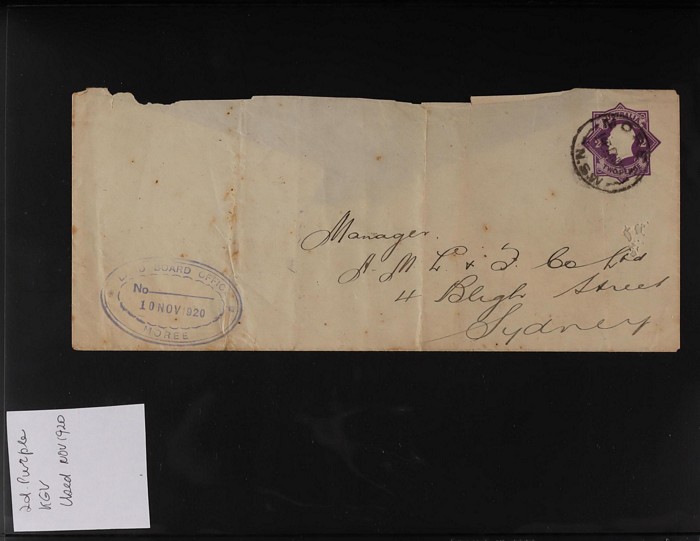 MOREE
N.S.W
TWO PENCE
Manager.
A. M L & F. Co Ltd
4 Bligh Street
Sydney
BOARD OFFICE
No
10 NOV 1920
MOREE
2d. Purple
KGV
Used NOV 1920